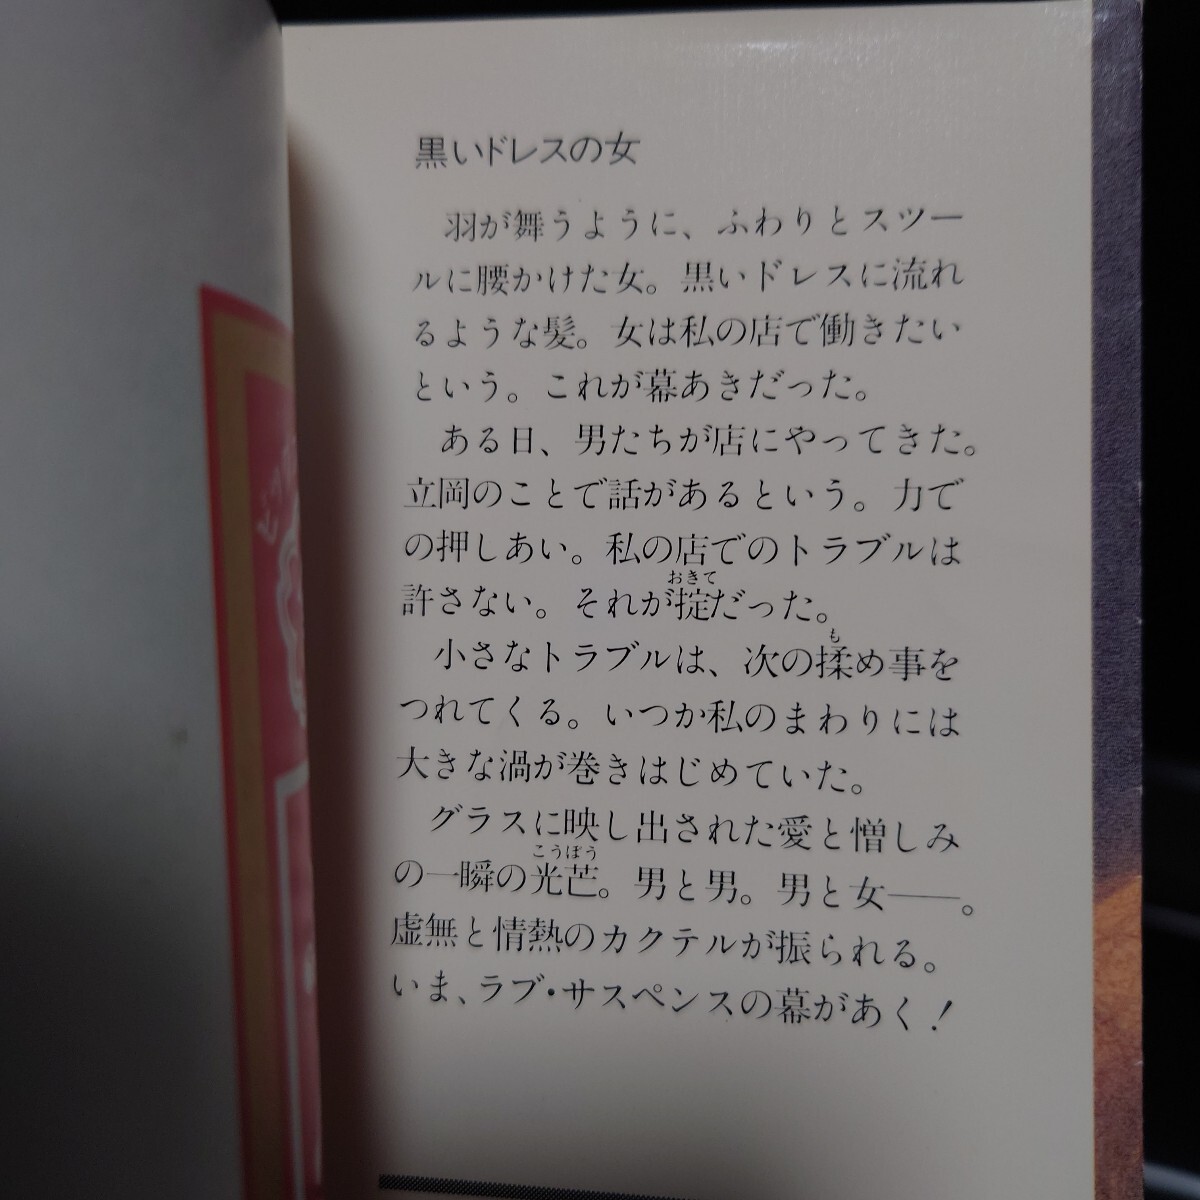 黒いドレスの女
羽が舞うように、ふわりとスツー
ルに腰かけた女。黒いドレスに流れ
るような髪。女は私の店で働きたい
という。これが幕あきだった。
ある日、男たちが店にやってきた。
立岡のことで話があるという。力で
の押しあい。私の店でのトラブルは
許さない。それが掟だった。
おきて
小さなトラブルは、次の揉め事を
も
つれてくる。いつか私のまわりには
大きな渦が巻きはじめていた。
グラスに映し出された愛と憎しみ
の一瞬の光芒。男と男。男と女――。
こうぼう
虚無と情熱のカクテルが振られる。
いま、ラブ・サスペンスの幕があく！